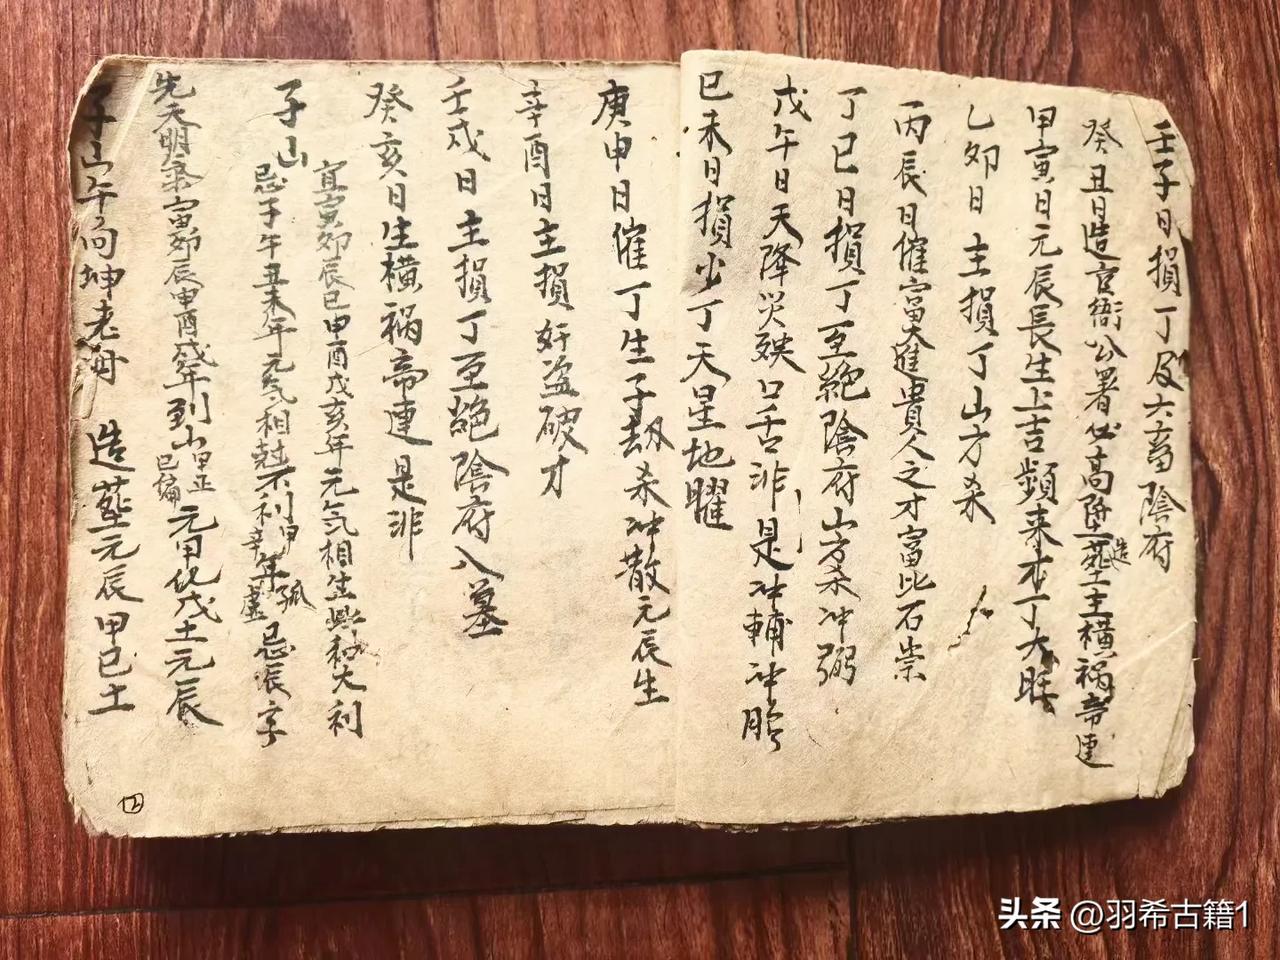 壬子日損丁及六畜陰府
癸丑日造官衙公署必高陞造塟主横禍帝連
甲寅日元辰長生上吉頻来才丁大旺
乙夘日主損丁山方杀
丙辰日催富大進貴人之才富比石崇
丁巳日損丁至絕陰府山方杀冲弼
戊午日天降災殃口舌非是冲輔冲胎
已未日損少丁天星地曜
庚申日催丁生子劫杀冲散元辰生
辛酉日主損奸盗破才
壬戌日主損丁至絕陰府入墓
癸亥日生横禍帝連是非
子山
宜寅夘辰巳申酉戌亥年元気相生比和大利
忌子午丑未年元気相尅不利申辛年孤虚忌辰字
先天明索寅夘辰申酉戌年到山甲正巳偏元甲化戊土元辰
子山午向坤老母 造塟元辰甲巳土
四
头条 @羽希古籍1